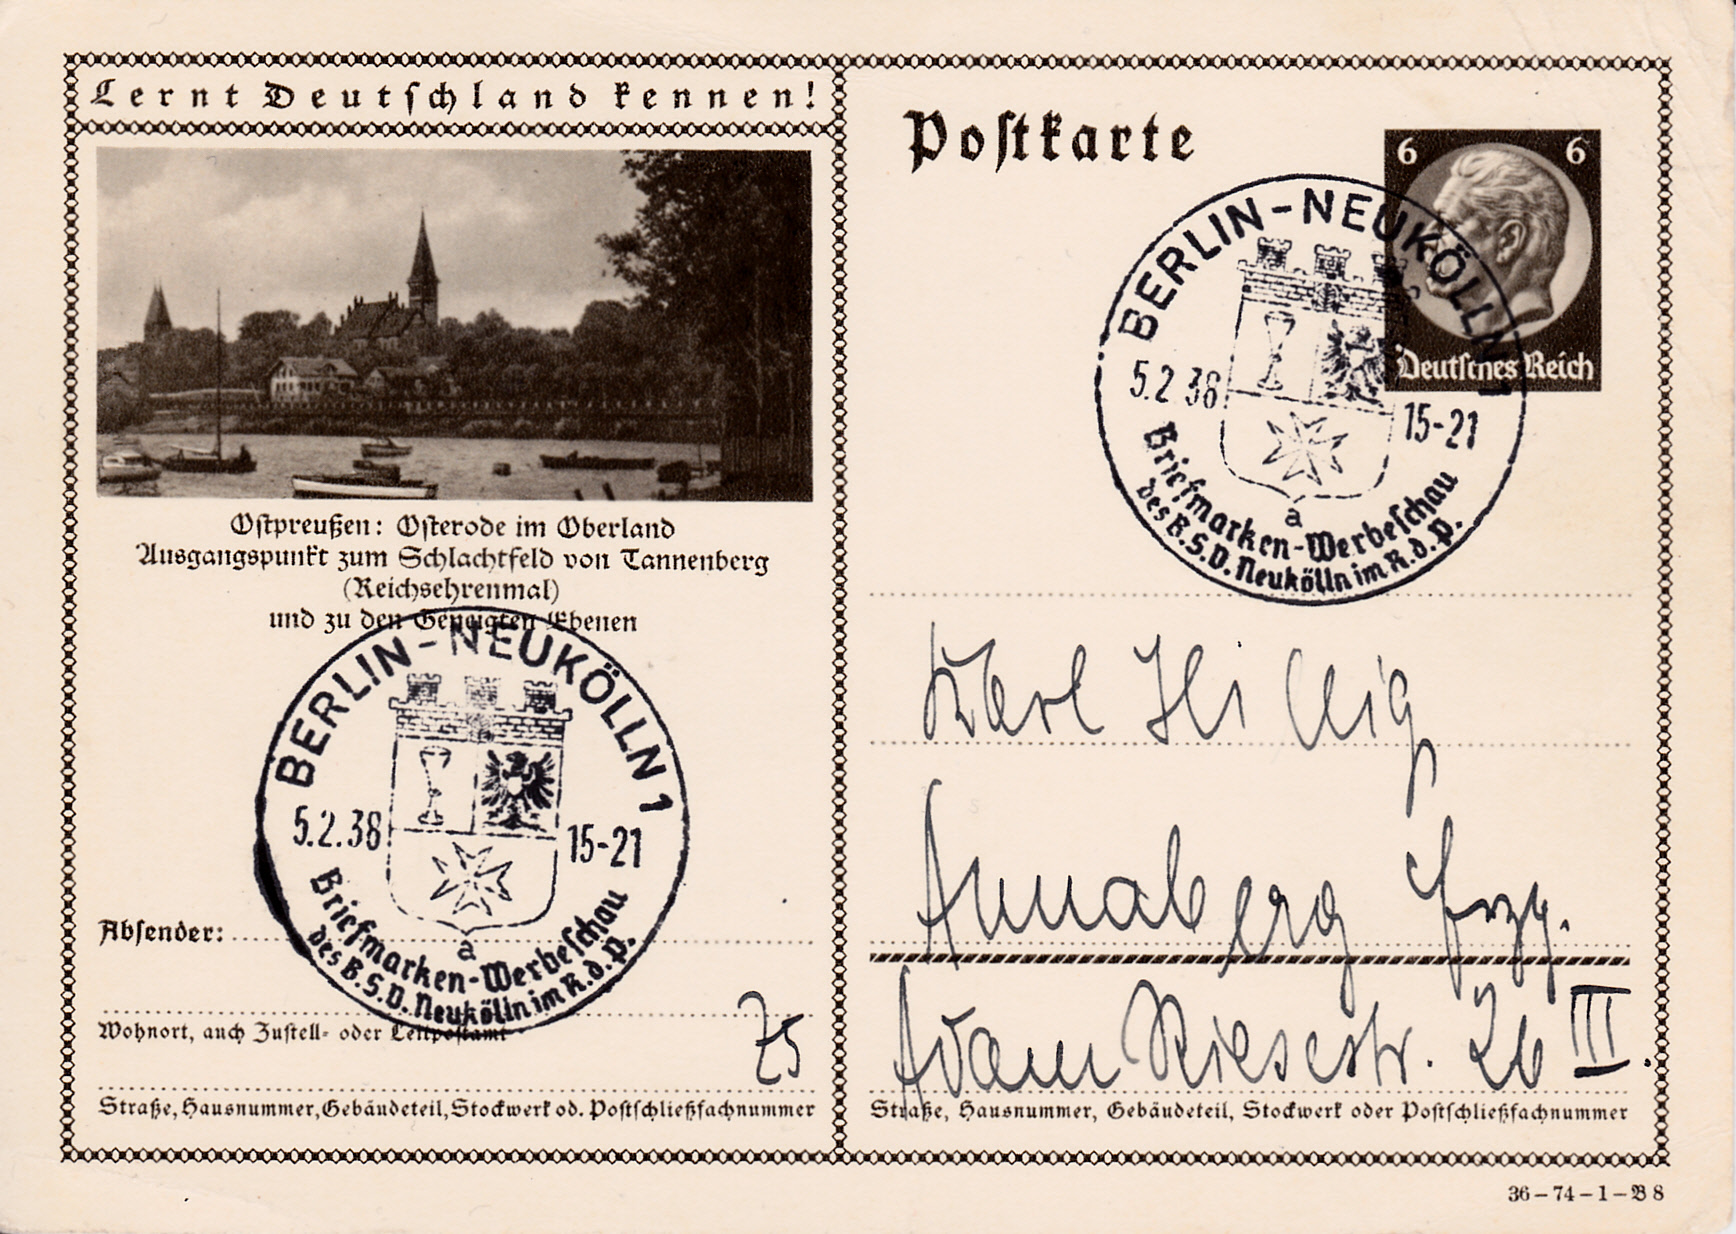 Lernt Deutschland kennen!
Ostpreußen: Osterode im Oberland
Ausgangspunkt zum Schlachtfeld von Tannenberg
(Reichsehrenmal)
und zu den Geneigten Ebenen
BERLIN-NEUKÖLLN 1
5.2.38 15-21
a
Briefmarken-Werbeschau
des B.S.V. Neukölln im R.d.P.
Absender:
Wohnort, auch Zustell- oder Leitpostamt
75
Straße, Hausnummer, Gebäudeteil, Stockwerk od. Postschließfachnummer
Postkarte
6 6
Deutsches Reich
BERLIN-NEUKÖLLN 1
5.2.38 15-21
a
Briefmarken-Werbeschau
des B.S.V. Neukölln im R.d.P.
Karl Hillig
Annaberg Erzg.
Adam Riesestr. 26 III.
Straße, Hausnummer, Gebäudeteil, Stockwerk oder Postschließfachnummer
36-74-1-B 8